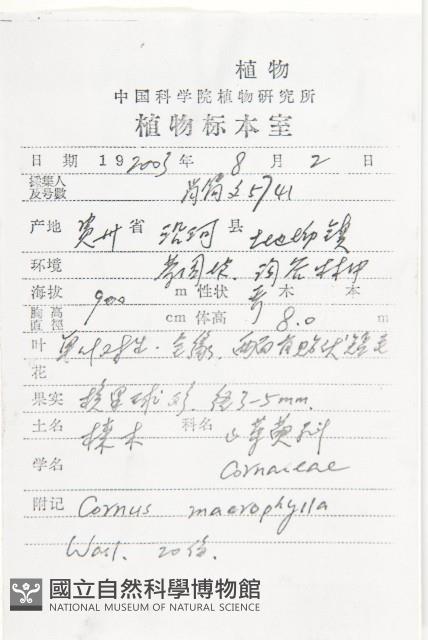 植物
中国科学院植物研究所
植物标本室
日期 19 2003 年 8 月 2 日
採集人
及号數 5741
产地 贵州 省 沿河 县
环境
海拔 900 m 性状 乔木 本
胸高
直徑 cm 体高 8.0 m
叶 单叶对生. 全缘. 两面有贴伏短毛
花
果实 核果球形. 径3-5mm.
土名 梾木 科名 山茱萸科
学名 Cornaceae
附记 Cornus macrophylla
Wall. 20份.
國立自然科學博物館
NATIONAL MUSEUM OF NATURAL SCIENCE